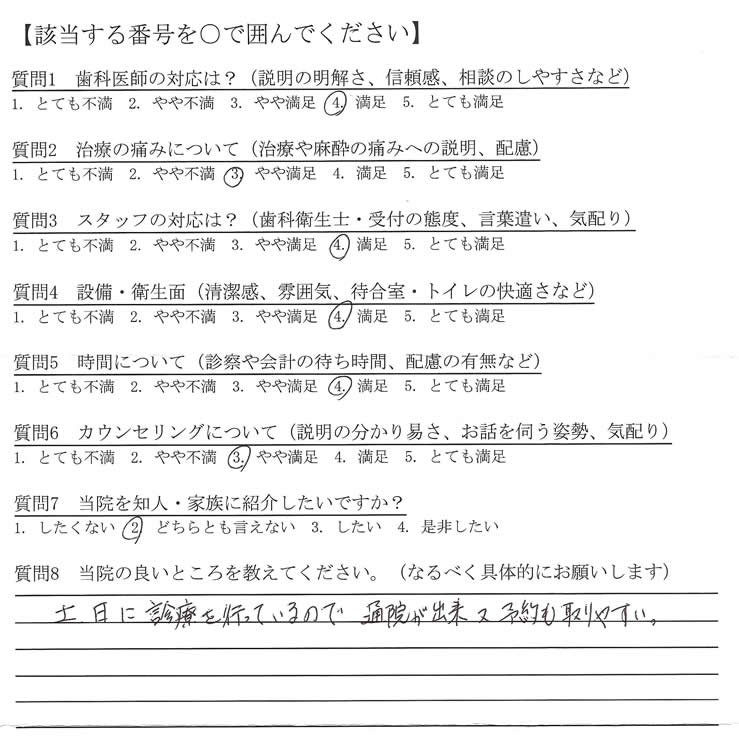 【該当する番号を○で囲んでください】
質問1　歯科医師の対応は？（説明の明解さ、信頼感、相談のしやすさなど）
1. とても不満　2. やや不満　3. やや満足　4. 満足　5. とても満足
質問2　治療の痛みについて（治療や麻酔の痛みへの説明、配慮）
1. とても不満　2. やや不満　3. やや満足　4. 満足　5. とても満足
質問3　スタッフの対応は？（歯科衛生士・受付の態度、言葉遣い、気配り）
1. とても不満　2. やや不満　3. やや満足　4. 満足　5. とても満足
質問4　設備・衛生面（清潔感、雰囲気、待合室・トイレの快適さなど）
1. とても不満　2. やや不満　3. やや満足　4. 満足　5. とても満足
質問5　時間について（診察や会計の待ち時間、配慮の有無など）
1. とても不満　2. やや不満　3. やや満足　4. 満足　5. とても満足
質問6　カウンセリングについて（説明の分かり易さ、お話を伺う姿勢、気配り）
1. とても不満　2. やや不満　3. やや満足　4. 満足　5. とても満足
質問7　当院を知人・家族に紹介したいですか？
1. したくない　2　どちらとも言えない　3. したい　4. 是非したい
質問8　当院の良いところを教えてください。（なるべく具体的にお願いします）
土日に診療を行っているので　通院が出来又予約も取りやすい。